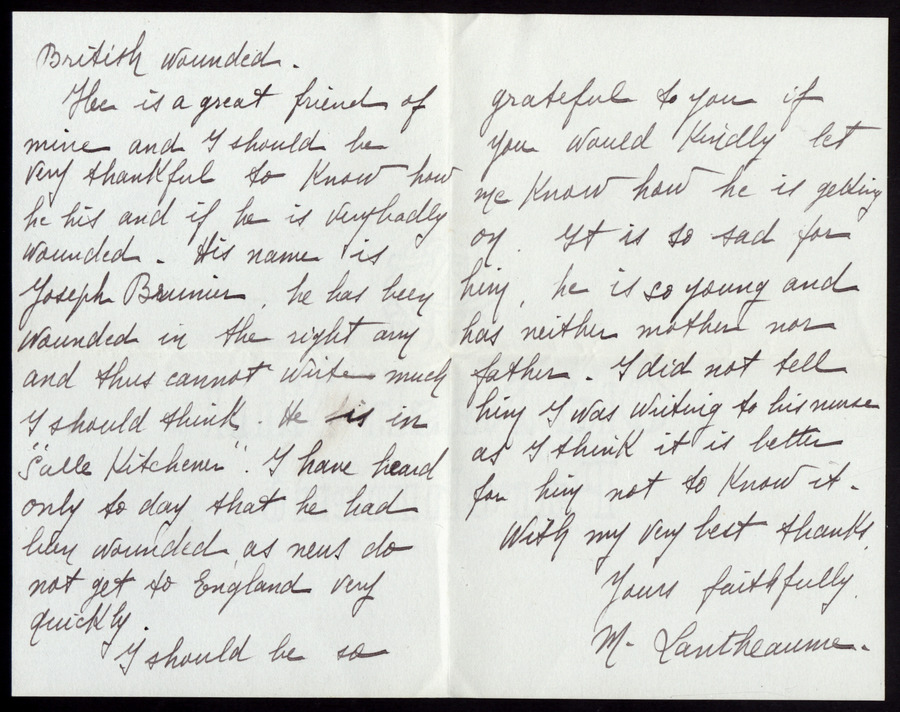 British wounded.
He is a great friend of
mine and I should be
very thankful to know how
he his and if he is very badly
wounded. His name is
Joseph Brunier, he has been
wounded in the right arm
and thus cannot write much
I should think. He is in
"Salle Kitchener". I have heard
only to day that he had
been wounded as news do
not get to England very
quickly.
I should be so
grateful to you if
you would kindly let
me know how he is getting
on. It is so sad for
him, he is so young and
has neither mother nor
father. I did not tell
him I was writing to his nurse
as I think it is better
for him not to know it.
With my very best thanks.
Yours faithfully.
M. Lantheaume.